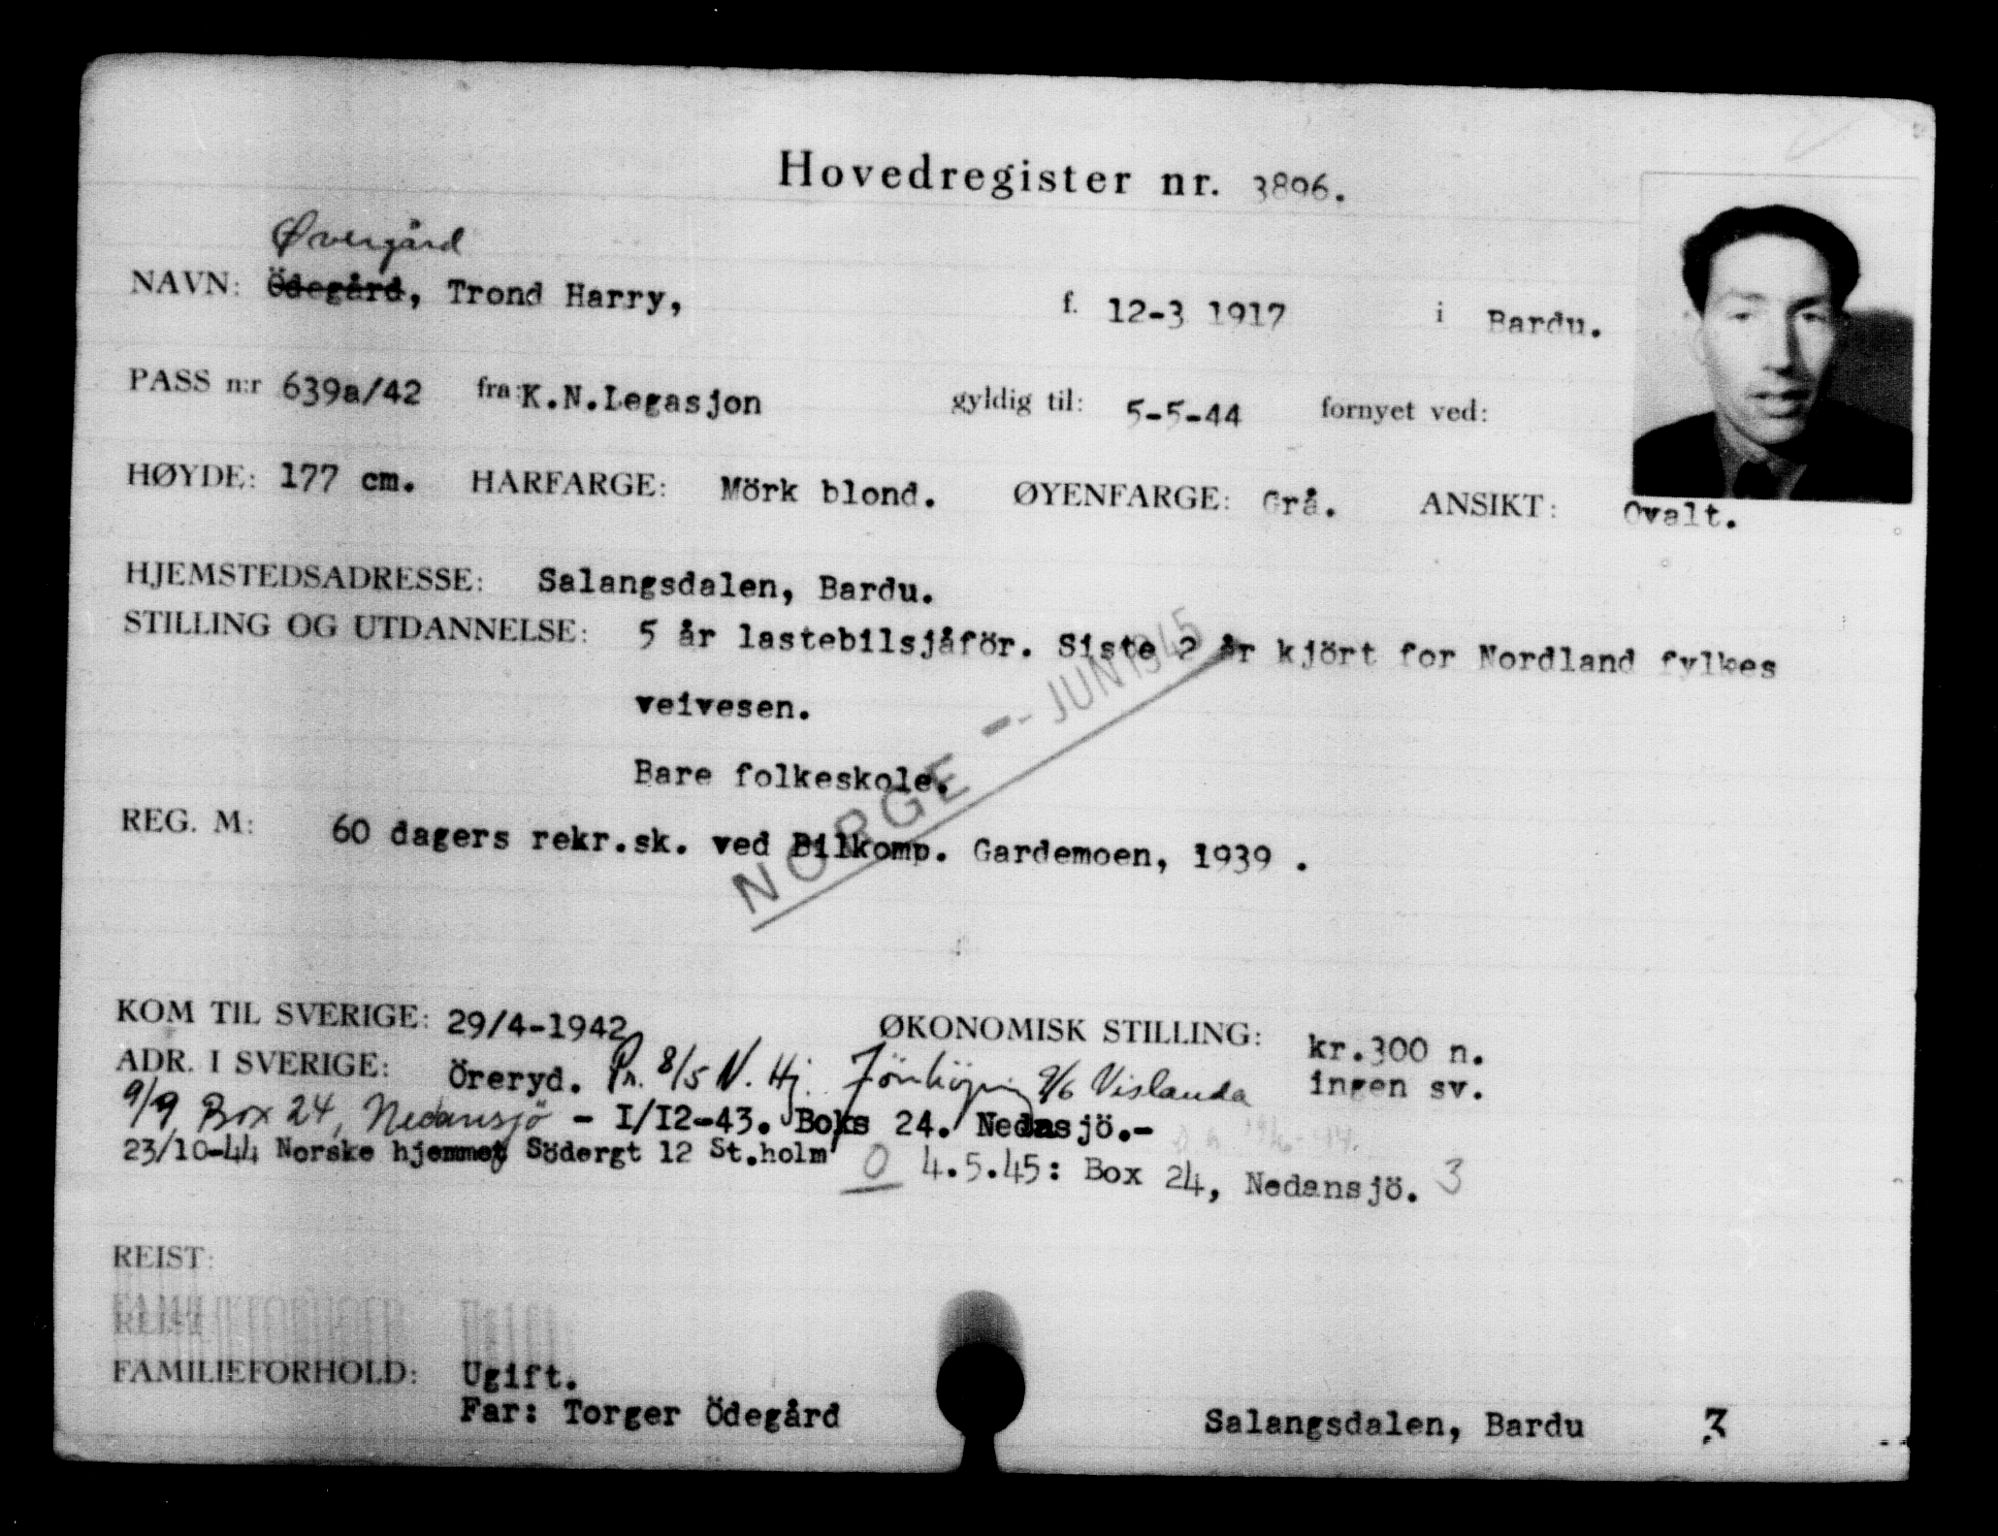 Hovedregister nr. 3896.
Øvergård
NAVN: Ödegård, Trond Harry, f. 12-3 1917 i Bardu.
PASS n:r 639a/42 fra: K.N.Legasjon gyldig til: 5-5-44 fornyet ved:
HØYDE: 177 cm. HARFARGE: Mörk blond. ØYENFARGE: Grå. ANSIKT: Ovalt.
HJEMSTEDSADRESSE: Salangsdalen, Bardu.
STILLING OG UTDANNELSE: 5 år lastebilsjåför. Siste 2 år kjört for Nordland fylkes
veivesen.
Bare folkeskole.
NORGE -- JUN 1945
REG. M: 60 dagers rekr.sk. ved Bilkomp. Gardemoen, 1939 .
KOM TIL SVERIGE: 29/4-1942 ØKONOMISK STILLING: kr.300 n.
ADR. I SVERIGE: Öreryd. Pr. 8/5 N. Hj. Jönköping 9/6 Vislanda ingen sv.
9/9 Box 24, Nedansjö - I/I2-43. Boks 24. Nedasjö.-
23/10-44 Norske hjemmet Södergt 12 St.holm O 4.5.45: Box 24, Nedansjö. 3
REIST:
FAMILIEFORHOLD: Ugift.
Far: Torger Ödegård Salangsdalen, Bardu 3